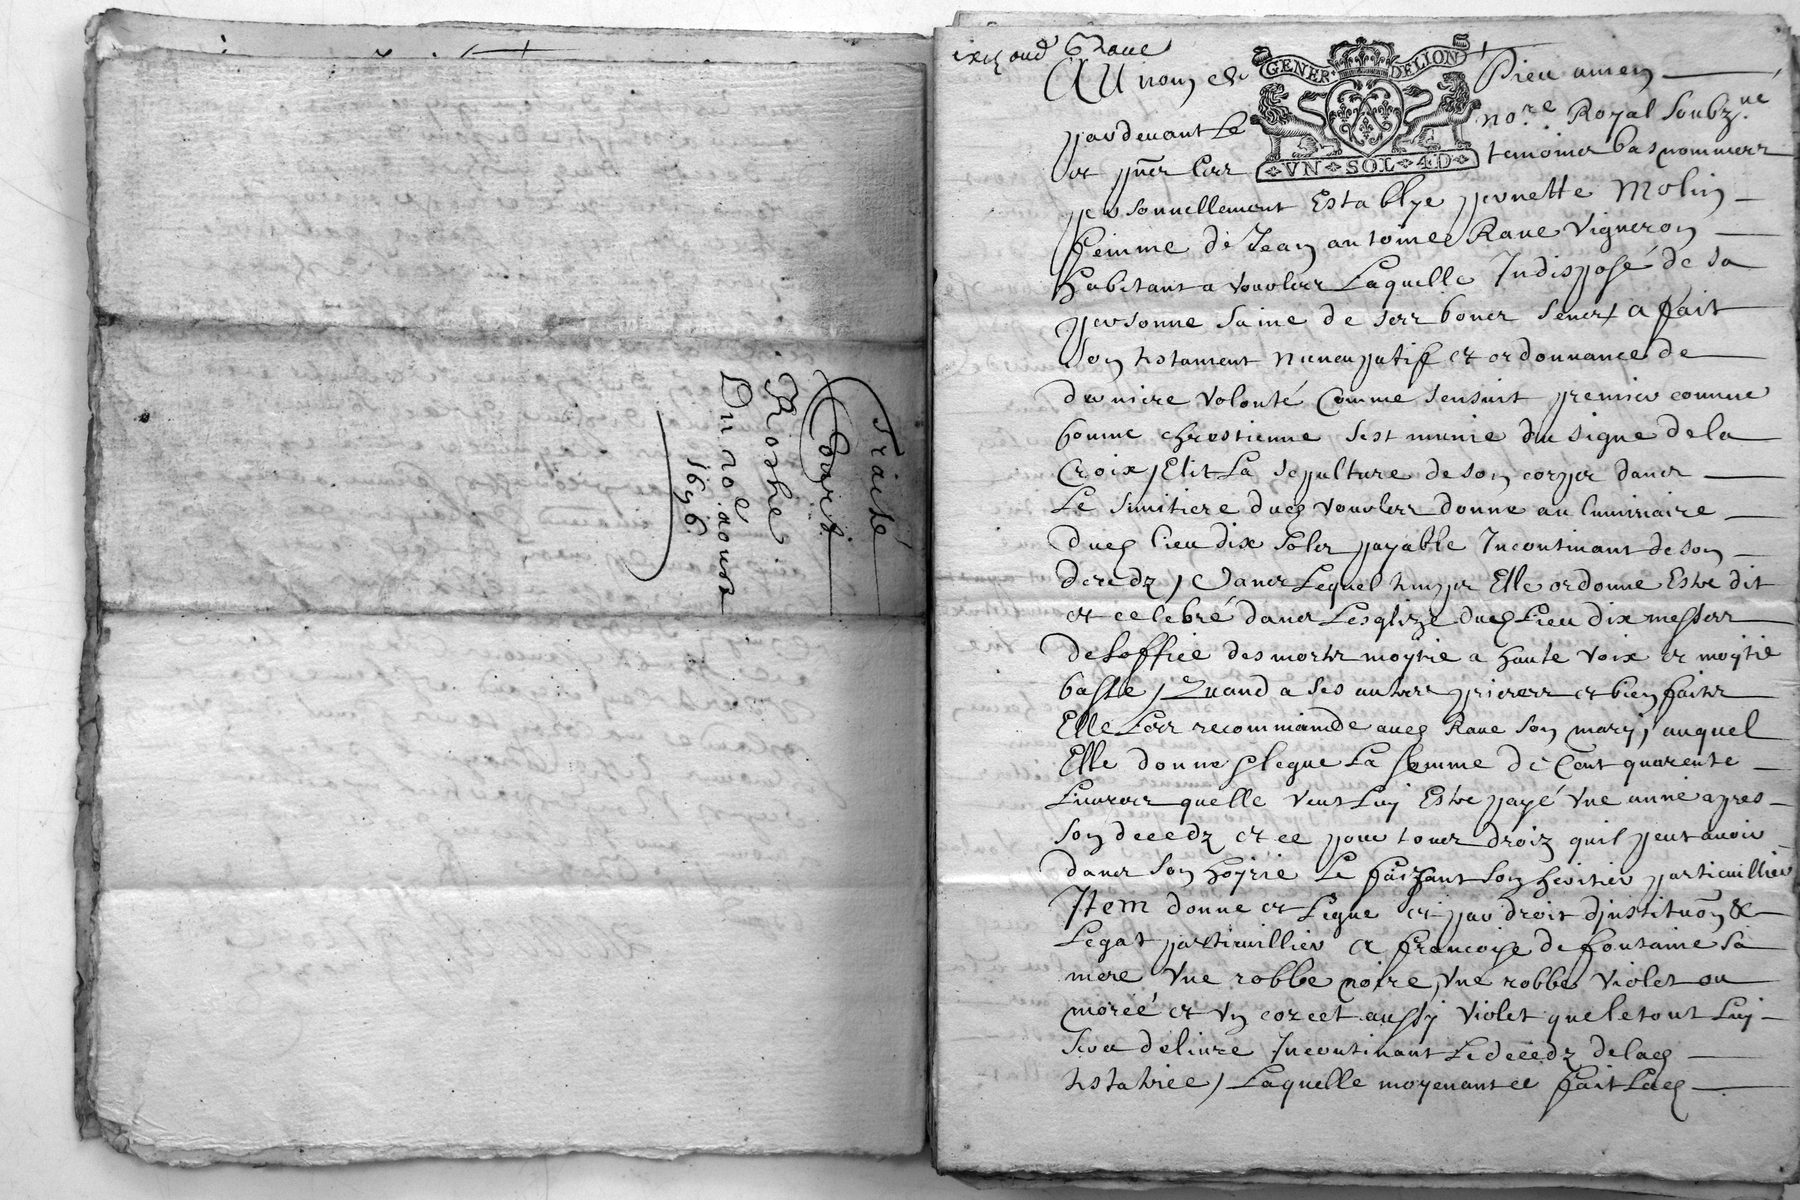 Traicté
Edart
Roche
Du 20e aoust
1696
Rave
GENER · DELION
VN · SOL · 4D
AU nom de Dieu amen
pardevant Le no.re Royal Soubz.ne
et pnes les temoins bas nommes
personnellement Establye pernette Molin
femme de Jean antoine Rave Vigneron
habitant a vourles Laquelle Indisposé de sa
personne saine de ses bons sens a fait
son testament nuncupatif et ordonnance de
derniere volonté Comme sensuit premier comme
bonne chrestienne sest munie du signe de la
Croix, Elit La sepulture de son corps dans
Le simitiere dud vourles donne au luminaire
dud lieu dix solz payable Incontinant deson
decedz, Dans Lequel temps Elle ordonne Estre dit
et celebré dans Lesglize dud Lieu dix messes
de Loffice des morts moytie a haute voix et moytie
basse, Quand a ses autres prieres et bienfaits
Elle Les recommande aud Rave son mary, auquel
Elle donne & legue La somme de Cent quarente
Livres quelle veut Luy Estre payé vne anné apres
son decedz et ce pour tous droiz quil peut avoir
dans son hoyrie Le faizant son heritier particuillier
Item donne et Legue et par droit djnstituõn &
Legat particuillier a francoise de fontaine sa
mere vne robbe noire, vne robbe violet ou
moréé et vn corcet aussy violet que le tout Luy
sera delivre Incontinant Le decedz de lad
testatrice, Laquelle moyenant ce fait Lad